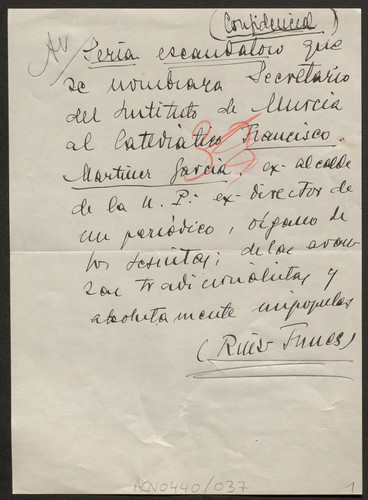 (Confidencial)
Av/
Sería escandaloso que
se nombrara Secretario
del Instituto de Murcia
al Catedrático Francisco
Martínez García, ex-alcalde
de la U. P.: ex-director de
un periódico, órgano de
los Jesuitas; de las
tradicionalistas y
absolutamente impopular
(Ruiz-Funes)
AGN0440/037
1